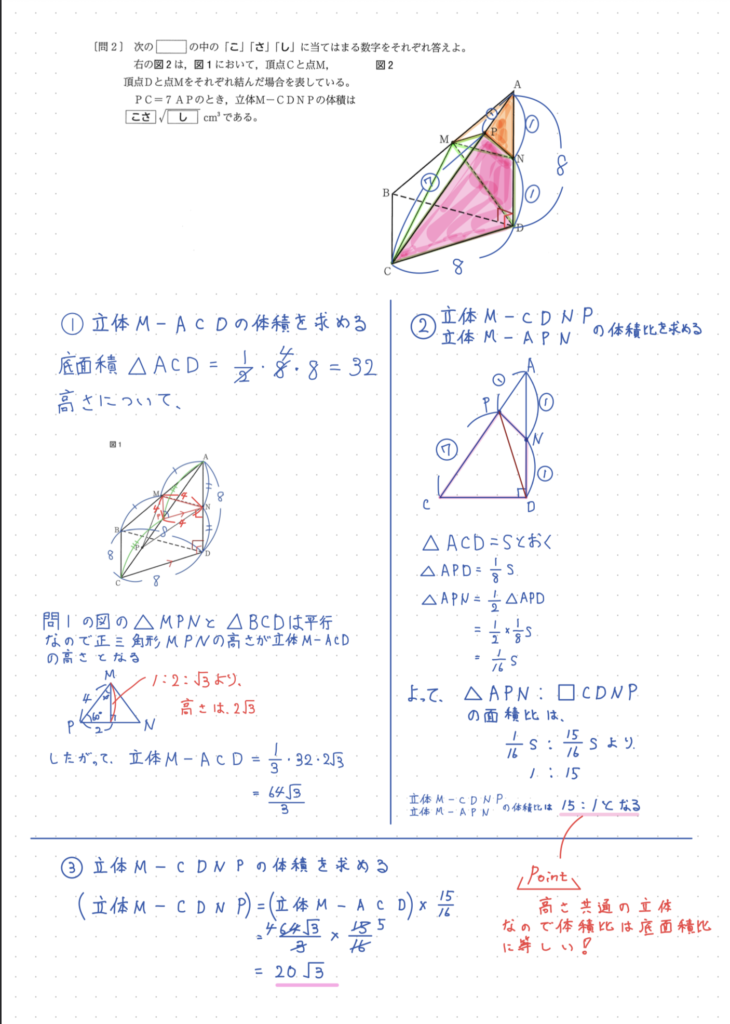 〔問2〕 次の□の中の「こ」「さ」「し」に当てはまる数字をそれぞれ答えよ。
右の図2は，図1において，頂点Cと点M，
図2
頂点Dと点Mをそれぞれ結んだ場合を表している。
PC＝7APのとき，立体M－CDNPの体積は
こさ√し cm³である。
A
① P ①
M
N 8
B ⑦ ①
D
C 8
① 立体M－ACDの体積を求める
底面積 △ACD = 1/2・8・8 = 32
4
高さについて、
図1
A
M 4 N 8
4 4
B 8
P D
8
C 8
問1の図の△MPNと△BCDは平行
なので正三角形MPNの高さが立体M-ACD
の高さとなる
M
4 30°
P 60° 2 N
1:2:√3より、
高さは2√3
したがって、立体M－ACD = 1/3・32・2√3
= 64√3/3
② 立体M－CDNP
立体M－APN の体積比を求める
A
① P ①
N
⑦ ①
C D
△ACD=Sとおく
△APD= 1/8 S
△APN= 1/2 △APD
= 1/2 × 1/8 S
= 1/16 S
よって、△APN：□CDNP
の面積比は、
1/16 S : 15/16 S より
1 : 15
立体M－CDNP
立体M－APN の体積比は 15:1となる
③ 立体M－CDNPの体積を求める
(立体M－CDNP)=(立体M－ACD)× 15/16
= 4 64√3/3 × 15/16 5
= 20√3
Point
高さ共通の立体
なので体積比は底面積比
に等しい！